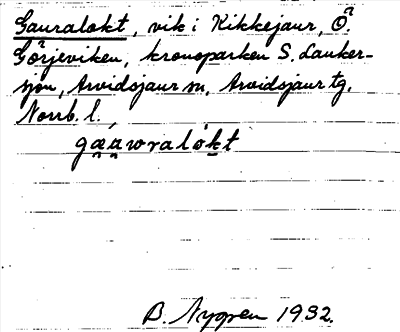 Gauralokt, vik i Kikkejaur, Ö.
Görjeviken, kronoparken S. Lauker-
sjön, Arvidsjaur sn, Arvidsjaur tg,
Norrb. l.,
gæ̯a̯wralókt
B. Nygren 1932.